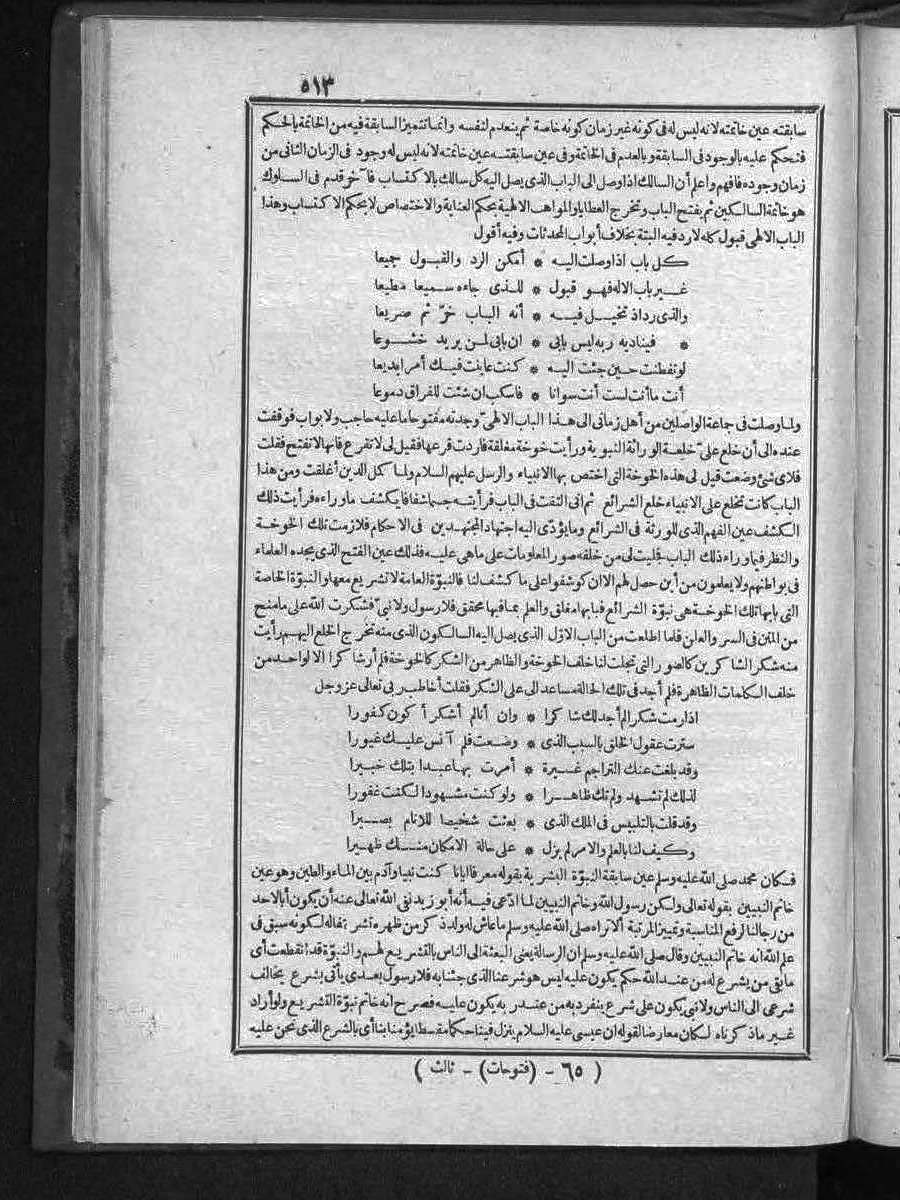 ٥١٣
سابقته عين خاتمته لانه ليس له فى كونه غير زمان كونه خاصة ثم ينعدم لنفسه وانما تتميز السابقة فيه من الخاتمة بالحكم
فنحكم عليه بالوجود فى السابقة وبالعدم فى الخاتمة وفى عين سابقته عين خاتمته لانه ليس له وجود فى الزمان الثانى من
زمان وجوده فافهم واعلم أن السالك اذا وصل الى الباب الذى يصل اليه كل سالك بالاكتساب فآخر قدم فى السلوك
هو خاتمة السالكين ثم يفتح الباب وتخرج العطايا والمواهب الالهية بحكم العناية والاختصاص لا بحكم الاكتساب وهذا
الباب الالهى قبول كله لارد فيه البتة بخلاف أبواب المحدثات وفيه أقول
كل باب اذا وصلت اليه * أمكن الرد والقبول جميعا
غير باب الاله فهو قبول * للذى جاءه سميعا مطيعا
والذى رد اذ تخيل فيه * أنه الباب خرّ ثم صريعا
* فيناديه ربه ليس بابى * ان بابى لمن يريد خشوعا
لو تفطنت حين جئت اليه * كنت عاينت فيك أمرا بديعا
أنت ما أنت لست أنت سوانا * فاسكب ان شئت للفراق دموعا
ولما وصلت فى جماعة الواصلين من أهل زمانى الى هذا الباب الالهىّ وجدته مفتوحا ما عليه حاجب ولا بواب فوقفت
عنده الى أن خلع علىّ خلعة الوراثة النبوية ورأيت خوخة مغلقة فاردت قرعها فقيل لى لا تقرع فانها لا تفتح فقلت
فلاى شئ وضعت قيل لى هذه الخوخة التى اختص بها الانبياء والرسل عليهم السلام ولما كمل الدين أغلقت ومن هذا
الباب كانت تخلع على الانبياء خلع الشرائع ثم انى التفت فى الباب فرأيته جسما شفافا يكشف ما وراءه فرأيت ذلك
الكشف عين الفهم الذى للورثة فى الشرائع وما يؤدّى اليه اجتهاد المجتهدين فى الاحكام فلازمت تلك الخوخة
والنظر فيما وراء ذلك الباب فجليت لى من خلفه صور المعلومات على ما هى عليه فذلك عين الفتح الذى يجده العلماء
فى بواطنهم ولا يعلمون من أين حصل لهم الا ان كوشفوا على ما كشف لنا فالنبوّة العامة لا تشريع معها والنبوّة الخاصة
التى بابها تلك الخوخة هى نبوّة الشرائع فبابها مغلق والعلم بما فيها محقق فلا رسول ولا نبىّ فشكرت الله على ما منح
من المنن فى السر والعلن فلما اطلعت من الباب الاوّل الذى يصل اليه السالكون الذى منه تخرج الخلع اليهم رأيت
منه شكر الشاكرين كالصور التى تجلت لنا خلف الخوخة والظاهر من الشكر كالخوخة فلم أر شاكرا الا لواحد من
خلف الكلمات الظاهرة فلم أجد فى تلك الحالة مساعدا لى على الشكر فقلت أخاطب ربى تعالى عز وجل
اذا رمت شكرا لم أجد لك شاكرا * وان أنا لم أشكر أكون كفورا
سترت عقول الخلق بالسبب الذى * وضعت فلم آنس عليك غيورا
وقد بلغت عنك التراجم غيرة * أمرت بها عبدا بتلك خبيرا
لذلك لم تشهد ولم تك ظاهرا * ولو كنت مشهودا لكنت غفورا
وقد قلت بالتلبيس فى الملك الذى * بعثت شخيصا للانام بصيرا
وكيف لنا بالعلم والامر لم يزل * على حالة الامكان منك ظهيرا
فكان محمد صلى الله عليه وسلم عين سابقة النبوّة البشرية بقوله معرفا ايانا كنت نبيا وآدم بين الماء والطين وهو عين
خاتم النبيين بقوله تعالى ولكن رسول الله وخاتم النبيين لما ادّعى فيه أنه أبو زيد نفى الله تعالى عنه أن يكون أبا لاحد
من رجالنا لرفع المناسبة وتمييز المرتبة ألا تراه صلى الله عليه وسلم ما عاش له ولد ذكر من ظهره تشريفا له لكونه سبق فى
علم الله انه خاتم النبيين وقال صلى الله عليه وسلم ان الرسالة يعنى البعثة الى الناس بالتشريع لهم والنبوّة قد انقطعت أى
ما بقى من يشرع له من عند الله حكم يكون عليه ليس هو شرعنا الذى جئنا به فلا رسول بعدى يأتى بشرع يخالف
شرعى الى الناس ولا نبى يكون على شرع ينفرد به من عند ربه يكون عليه فصرح انه خاتم نبوّة التشريع ولو أراد
غير ما ذكرناه لكان معارضا لقوله ان عيسى عليه السلام ينزل فينا حكما مقسطا يؤمنا بنا أى بالشرع الذى نحن عليه
( ٦٥ - (فتوحات) - ثالث )